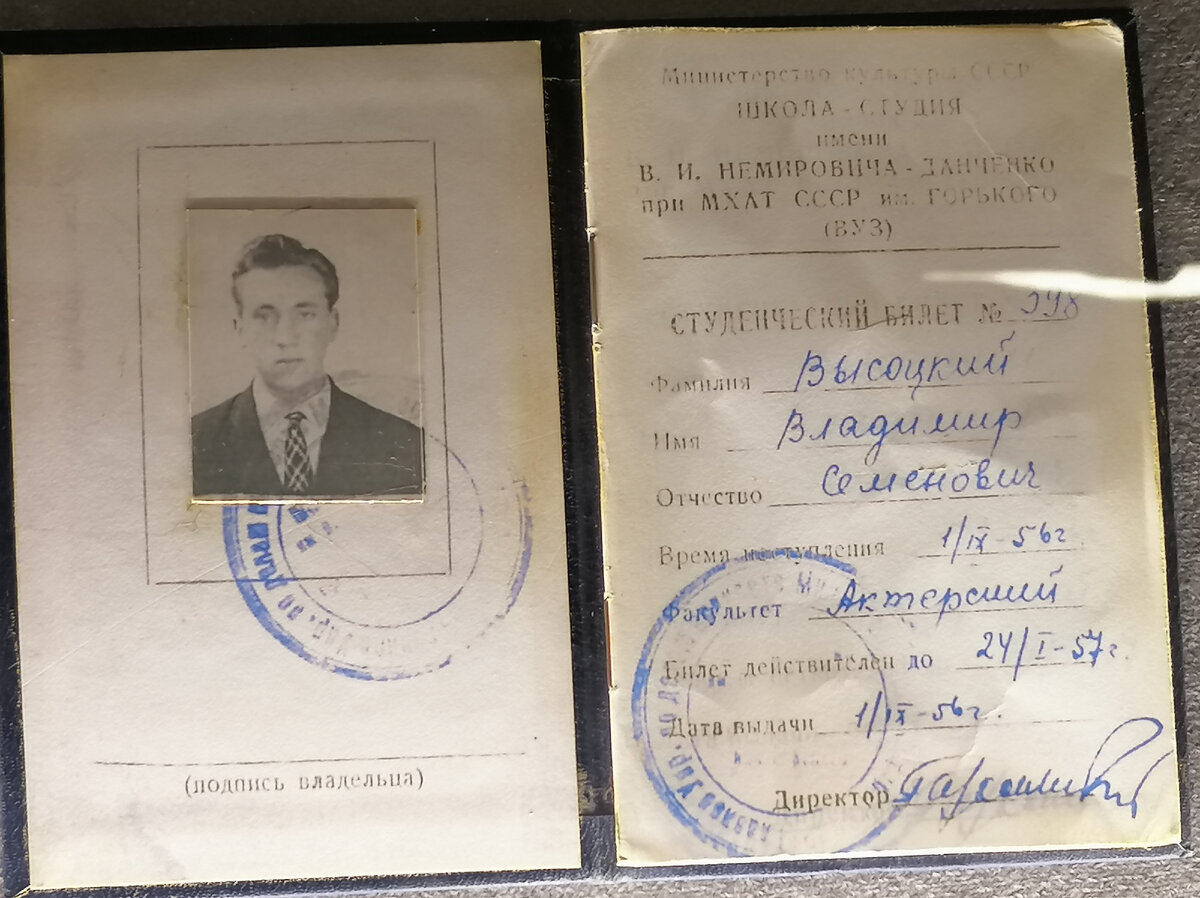 (подпись владельца)
Министерство культуры СССР
ШКОЛА - СТУДИЯ
имени
В. И. НЕМИРОВИЧА - ДАНЧЕНКО
при МХАТ СССР им. ГОРЬКОГО
(ВУЗ)
СТУДЕНЧЕСКИЙ БИЛЕТ №
Фамилия Высоцкий
Имя Владимир
Отчество Семенович
Время поступления 1/IX-56г
Факультет Актерский
Билет действителен до 24/I-57г.
Дата выдачи 1/IX-56г.
Директор